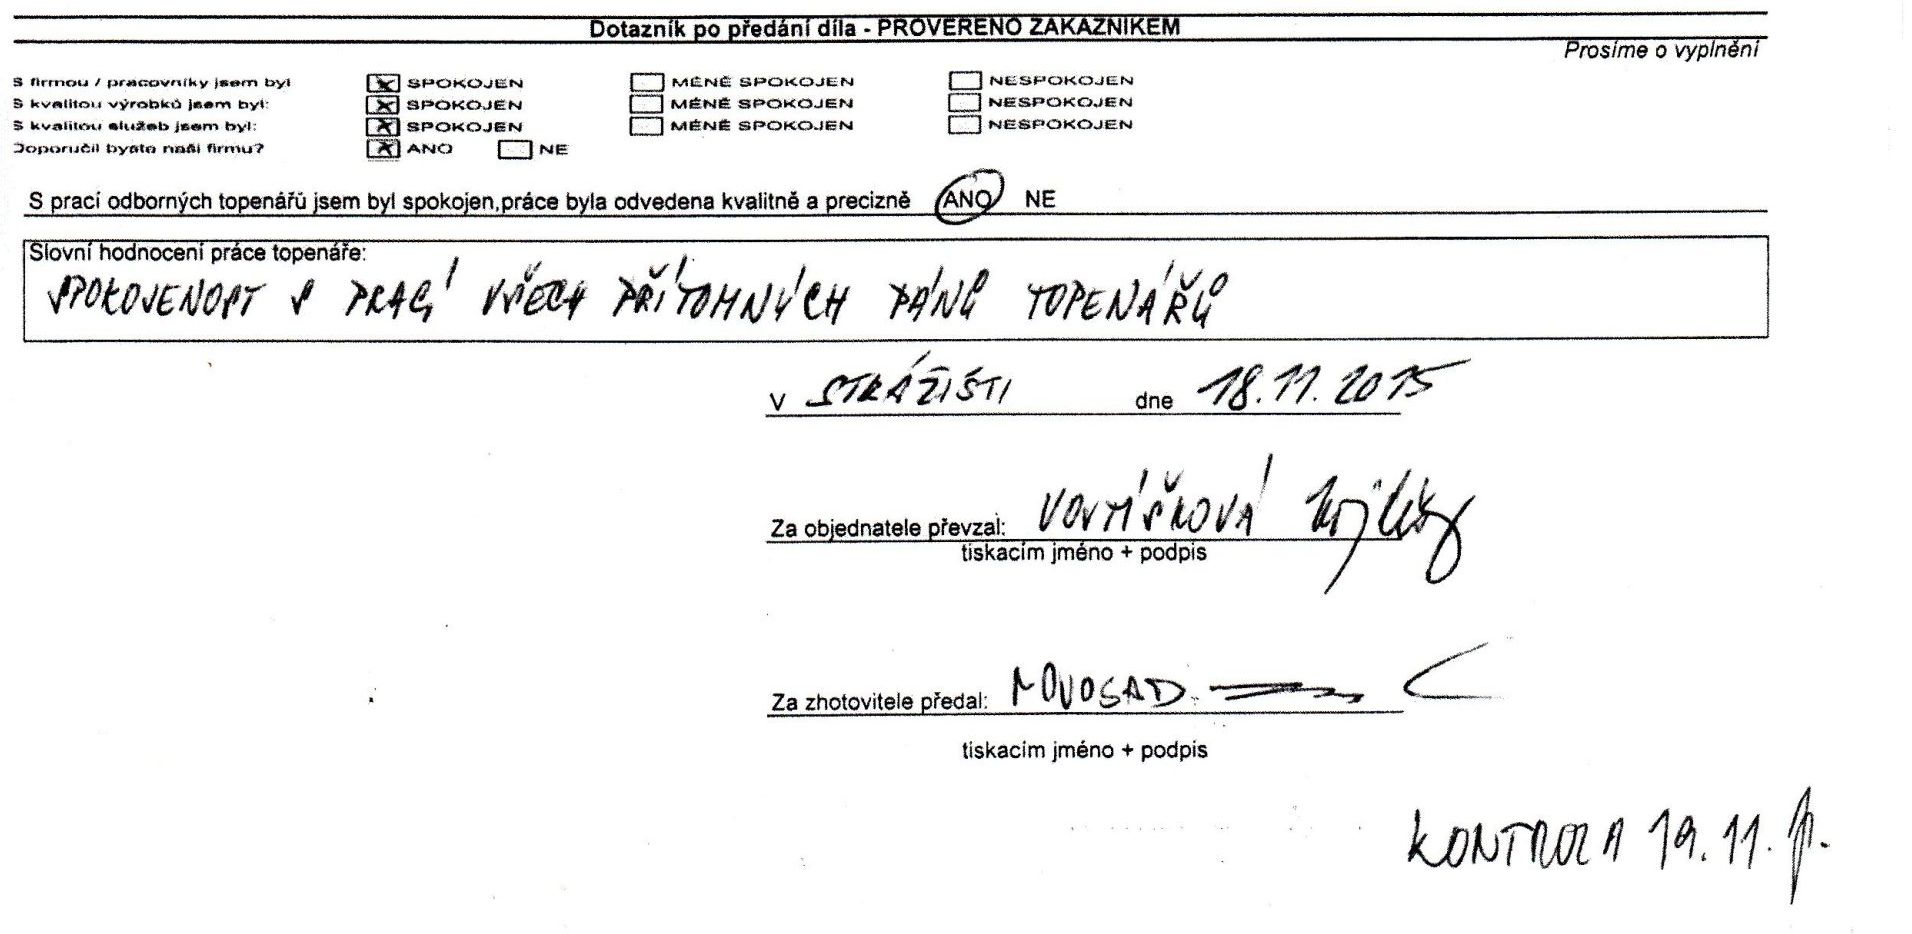 Dotazník po předání díla - PROVĚŘENO ZÁKAZNÍKEM
Prosíme o vyplnění
S firmou / pracovníky jsem byl SPOKOJEN MÉNĚ SPOKOJEN NESPOKOJEN
S kvalitou výrobků jsem byl: SPOKOJEN MÉNĚ SPOKOJEN NESPOKOJEN
S kvalitou služeb jsem byl: SPOKOJEN MÉNĚ SPOKOJEN NESPOKOJEN
Doporučil byste naši firmu? ANO NE
S prací odborných topenářů jsem byl spokojen,práce byla odvedena kvalitně a precizně ANO NE
Slovní hodnocení práce topenáře:
SPOKOJENOST S PRACÍ VŠECH PŘÍTOMNÝCH PÁNŮ TOPENÁŘŮ
V STRÁŽIŠTI dne 18.11.2015
Za objednatele převzal: VOJTÍŠKOVÁ
tiskacím jméno + podpis
Za zhotovitele předal: NOVOSAD
tiskacím jméno + podpis
KONTROLA 19.11.